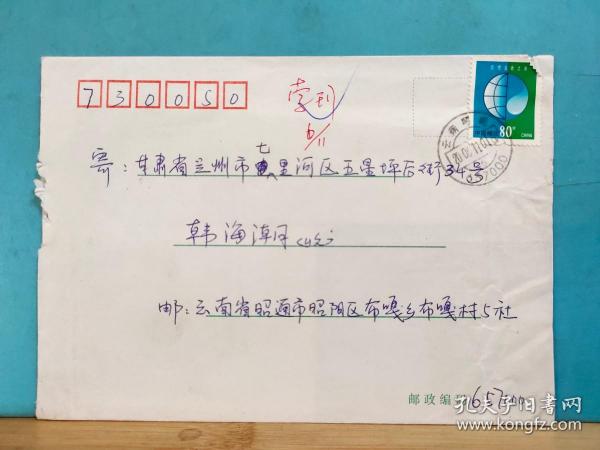 730050
收到
6/11
寄:甘肃省兰州市七里河区五星坪后街34号
韩海潮(收)
邮:云南省昭通市昭阳区布嘎乡布嘎村5社
邮政编码 657000
80分
中国邮政
CHINA
657000
孔夫子旧书网
www.kongfz.com